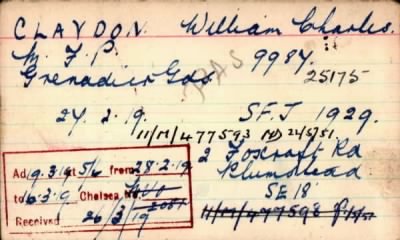 CLAYDON. William Charles.
M.F.P. 9984.
Grenadier Gds 25175
PAS
24. 2. 19. S.F.J 1929.
11/M/477593 MD 24/5/51
2 Foxcroft Rd
Plumstead
SE 18
11/M/477598
Ad 19.3.19 at 5/6 from 28-2-19
to 16.3.19 Chelsea No.
Received 26/3/19